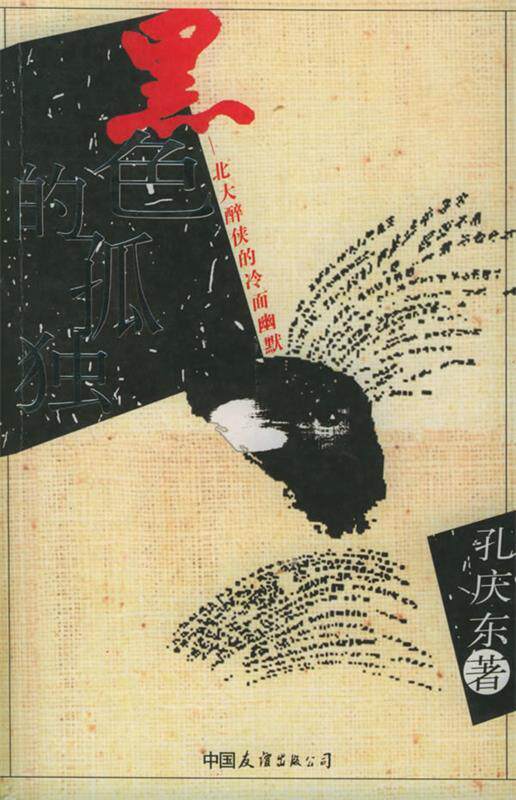 黑色的孤独
—北大醉侠的冷面幽默
孔庆东著
中国友谊出版公司